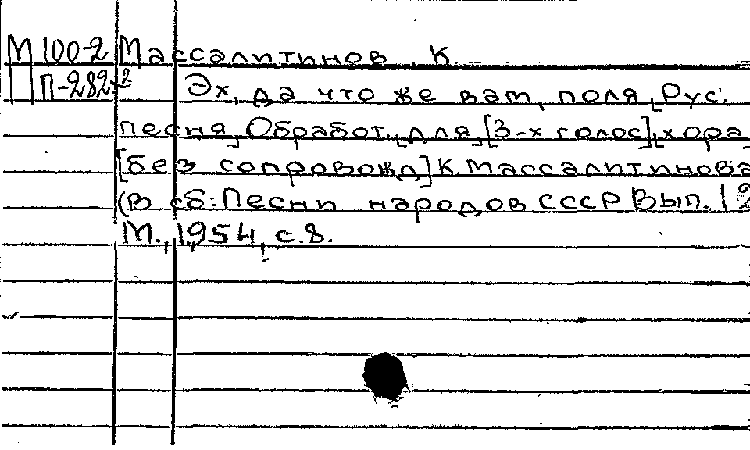 М 100-2 Массалитинов, К.
П П-282-2 Эх, да что же вам, поля, [Рус.
песня, Обработ. для [3-х голос], хора
[без сопровожд] К. Массалитинова
(В сб: Песни народов СССР Вып. 12
М., 1954, с. 8.